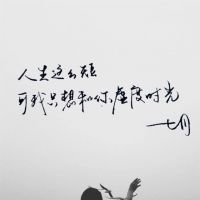 人生这么短
可我只想和你虚度时光
—七月